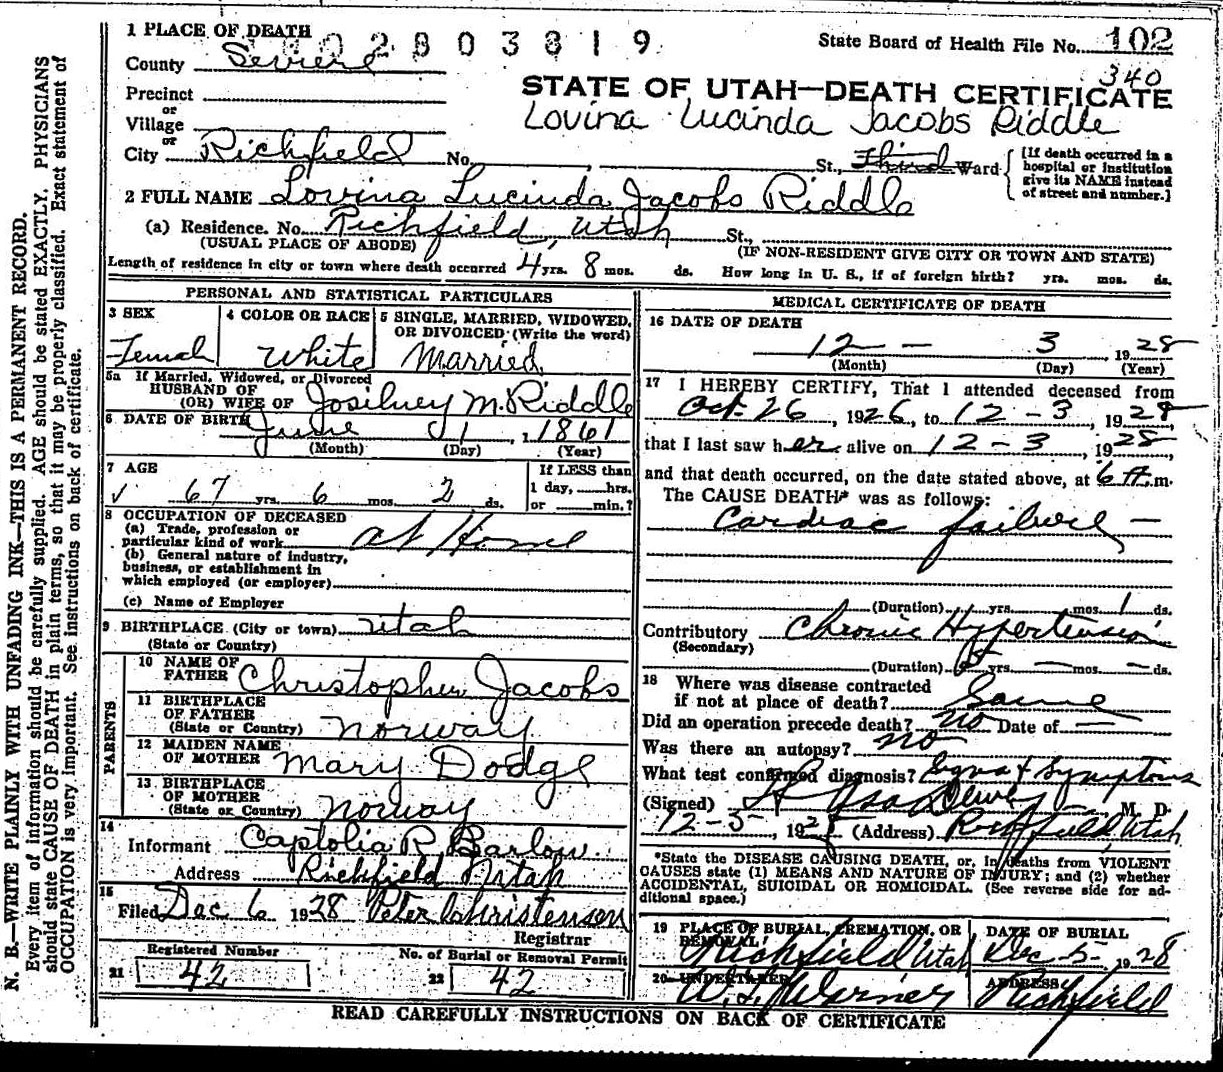 1 PLACE OF DEATH
02803819
State Board of Health File No. 102
340
County Sevier
STATE OF UTAH—DEATH CERTIFICATE
Precinct
or
Village
Lovina Lucinda Jacobs Riddle
or
City Richfield No. St., Third Ward
[If death occurred in a hospital or institution give its NAME instead of street and number.]
2 FULL NAME Lovina Lucinda Jacobs Riddle
(a) Residence. No. Richfield, Utah St.,
(USUAL PLACE OF ABODE) (IF NON-RESIDENT GIVE CITY OR TOWN AND STATE)
Length of residence in city or town where death occurred 4 yrs. 8 mos. ds. How long in U. S., if of foreign birth? yrs. mos. ds.
PERSONAL AND STATISTICAL PARTICULARS
3 SEX 4 COLOR OR RACE 5 SINGLE, MARRIED, WIDOWED,
OR DIVORCED (Write the word)
Female White Married
5a If Married, Widowed, or Divorced
HUSBAND OF
(OR) WIFE OF M. Riddle
6 DATE OF BIRTH June 1, 1861
(Month) (Day) (Year)
7 AGE If LESS than
1 day, hrs.
67 yrs. 6 mos. 2 ds. or min.?
8 OCCUPATION OF DECEASED
(a) Trade, profession or
particular kind of work at Home
(b) General nature of industry,
business, or establishment in
which employed (or employer)
(c) Name of Employer
9 BIRTHPLACE (City or town) Utah
(State or Country)
PARENTS
10 NAME OF
FATHER Christopher Jacobs
11 BIRTHPLACE
OF FATHER
(State or Country) Norway
12 MAIDEN NAME
OF MOTHER Mary Dodge
13 BIRTHPLACE
OF MOTHER
(State or Country) Norway
14
Informant Captolia R Barlow
Address Richfield Utah
15
Filed Dec 6 1928 Peter Christensen
Registrar
Registered Number No. of Burial or Removal Permit
21 42 22 42
MEDICAL CERTIFICATE OF DEATH
16 DATE OF DEATH
12 — 3, 1928
(Month) (Day) (Year)
17 I HEREBY CERTIFY, That I attended deceased from
Oct-26, 1926, to 12-3, 1928
that I last saw her alive on 12-3, 1928,
and that death occurred, on the date stated above, at 6 A.m.
The CAUSE DEATH* was as follows:
Cardiac failure —
(Duration) yrs. mos. 1 ds.
Contributory Chronic Hypertension
(Secondary)
(Duration) yrs. — mos. — ds.
18 Where was disease contracted
if not at place of death? Same
Did an operation precede death? no Date of —
Was there an autopsy? no
What test confirmed diagnosis? Signs & Symptoms
(Signed) M. D.
12-3-, 1928 (Address) Richfield Utah
*State the DISEASE CAUSING DEATH, or, in deaths from VIOLENT
CAUSES state (1) MEANS AND NATURE OF INJURY; and (2) whether
ACCIDENTAL, SUICIDAL OR HOMICIDAL. (See reverse side for ad-
ditional space.)
19 PLACE OF BURIAL, CREMATION, OR
REMOVAL DATE OF BURIAL
Richfield Utah Dec-5- 1928
20 UNDERTAKER ADDRESS
Warner Richfield
READ CAREFULLY INSTRUCTIONS ON BACK OF CERTIFICATE
N. B.—WRITE PLAINLY WITH UNFADING INK—THIS IS A PERMANENT RECORD.
Every item of information should be carefully supplied. AGE should be stated EXACTLY. PHYSICIANS
should state CAUSE OF DEATH in plain terms, so that it may be properly classified. Exact statement of
OCCUPATION is very important. See instructions on back of certificate.